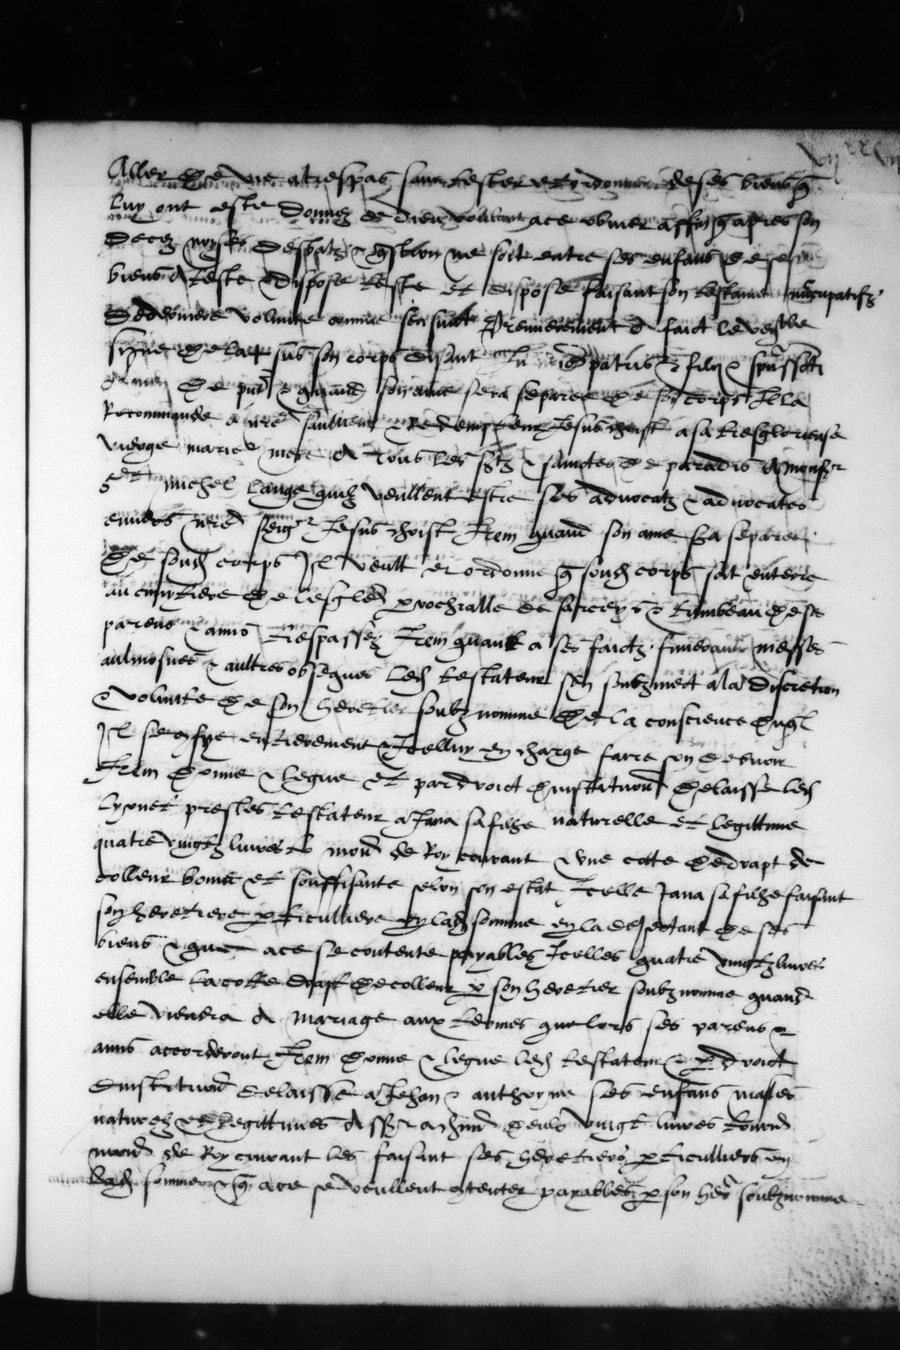 Aller de vie a trespas sans tester et ordonner de ses biens q̃
luy ont este donnez de dieu voulant a ce obvier affin q̃ apres son
decez noyses debatz & q̃stion ne soit entre ses enfans de ses
biens A teste & dispose teste et dispose faisant son testament nũcupatifz
de derniere volunte comme sen suict Premierement A faict le venble
signe de la + sus son corps disant In noïe patris & filij & spũssãti
amen Et puis quand son ame sera separee de son corps Il la
Recommande a nr̃e saulveur & redempteur Jesus christ a sa tresglorieuse
vierge marie mere A tous les sctz & sainctes de paradis A monsr
sct michel lange quilz veullent estre ses advocatz & advocates
envers nr̃e seigr Jesus christ Item quand son ame sera separee
de soud corps Il veult et ordonne q̃ soud corps soit enterre
au cimitiere de lesglise p̱rochialle de & tumbeau de ses
parens & amis trespassez Item quant a ses faictz funeraulx messes
aulmosnes & aultres obseques led testateur sen soubzmect a la discretion
& volunte de son heretier soubz nomme de la conscience duql
Il se cõfye entierement & Icelluy en charge faire son debvoir
Item donne & legue et par droict dinstitution delaisse led
lyonet testateur a Jana sa filhe naturelle et legittime
quatre vingtz livres ts mon de Roy courant & une cotte de drapt de
colleur bonne et souffisante selon son estat Icelle Jana sa filhe faisant
son heretiere p̱ticulliere en lad somme en la de ses
biens & que a ce se contente payables Icelles quatre vingtz livres
ensemble la cotte drapt de colleur p̱ son heretier soubz nomme quand
elle viendra A mariage aux termes que lors ses parens &
amis accorderont Item donne & legue led testateur & p̱ droict
dinstitution delaisse a Jehan & anthoyne ses enfans masles
naturelz & legittimes A sc̃ a chũn deulx vingt livres tourn
mon de Roy courant les faisant ses heretiers p̱ticulliers en
lad somme & q̃ a ce se veullent c̃tenter payables p̱ son her̃ soubz nomme